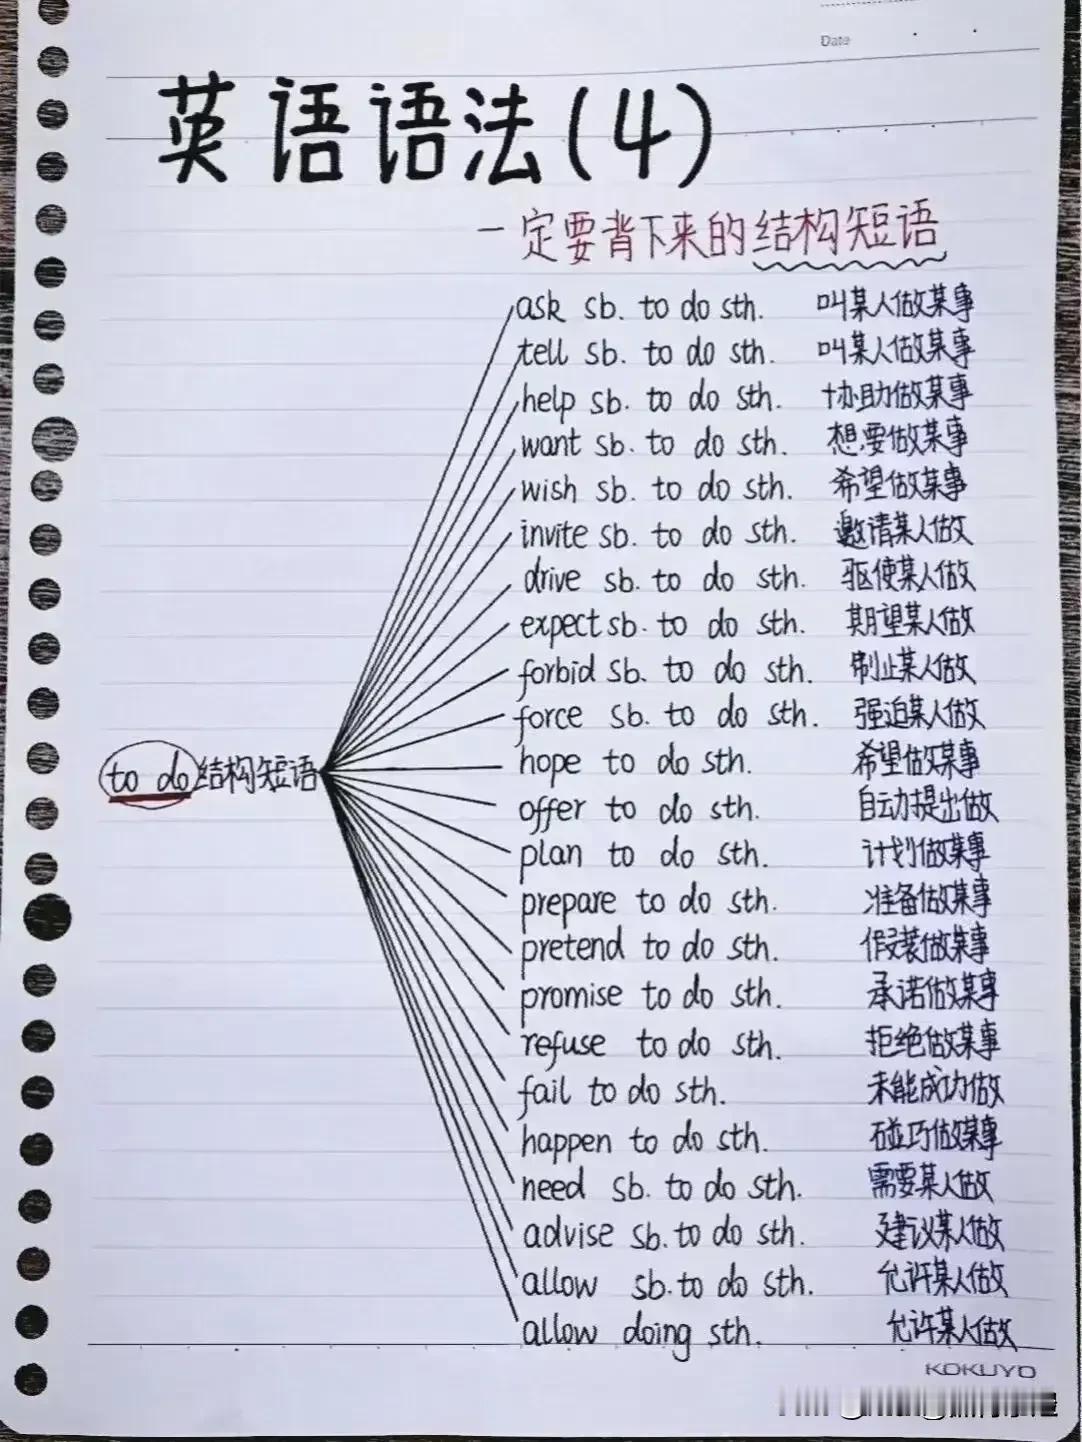 Date
英语语法(4)
一定要背下来的结构短语
ask sb. to do sth. 叫某人做某事
tell sb. to do sth. 叫某人做某事
help sb. to do sth. 协助做某事
want sb. to do sth. 想要做某事
wish sb. to do sth. 希望做某事
invite sb. to do sth. 邀请某人做
drive sb. to do sth. 驱使某人做
expect sb. to do sth. 期望某人做
forbid sb. to do sth. 制止某人做
force sb. to do sth. 强迫某人做
hope to do sth. 希望做某事
to do 结构短语
offer to do sth. 自动提出做
plan to do sth. 计划做某事
prepare to do sth. 准备做某事
pretend to do sth. 假装做某事
promise to do sth. 承诺做某事
refuse to do sth. 拒绝做某事
fail to do sth. 未能成功做
happen to do sth. 碰巧做某事
need sb. to do sth. 需要某人做
advise sb. to do sth. 建议某人做
allow sb. to do sth. 允许某人做
allow doing sth. 允许某人做
KOKUYO